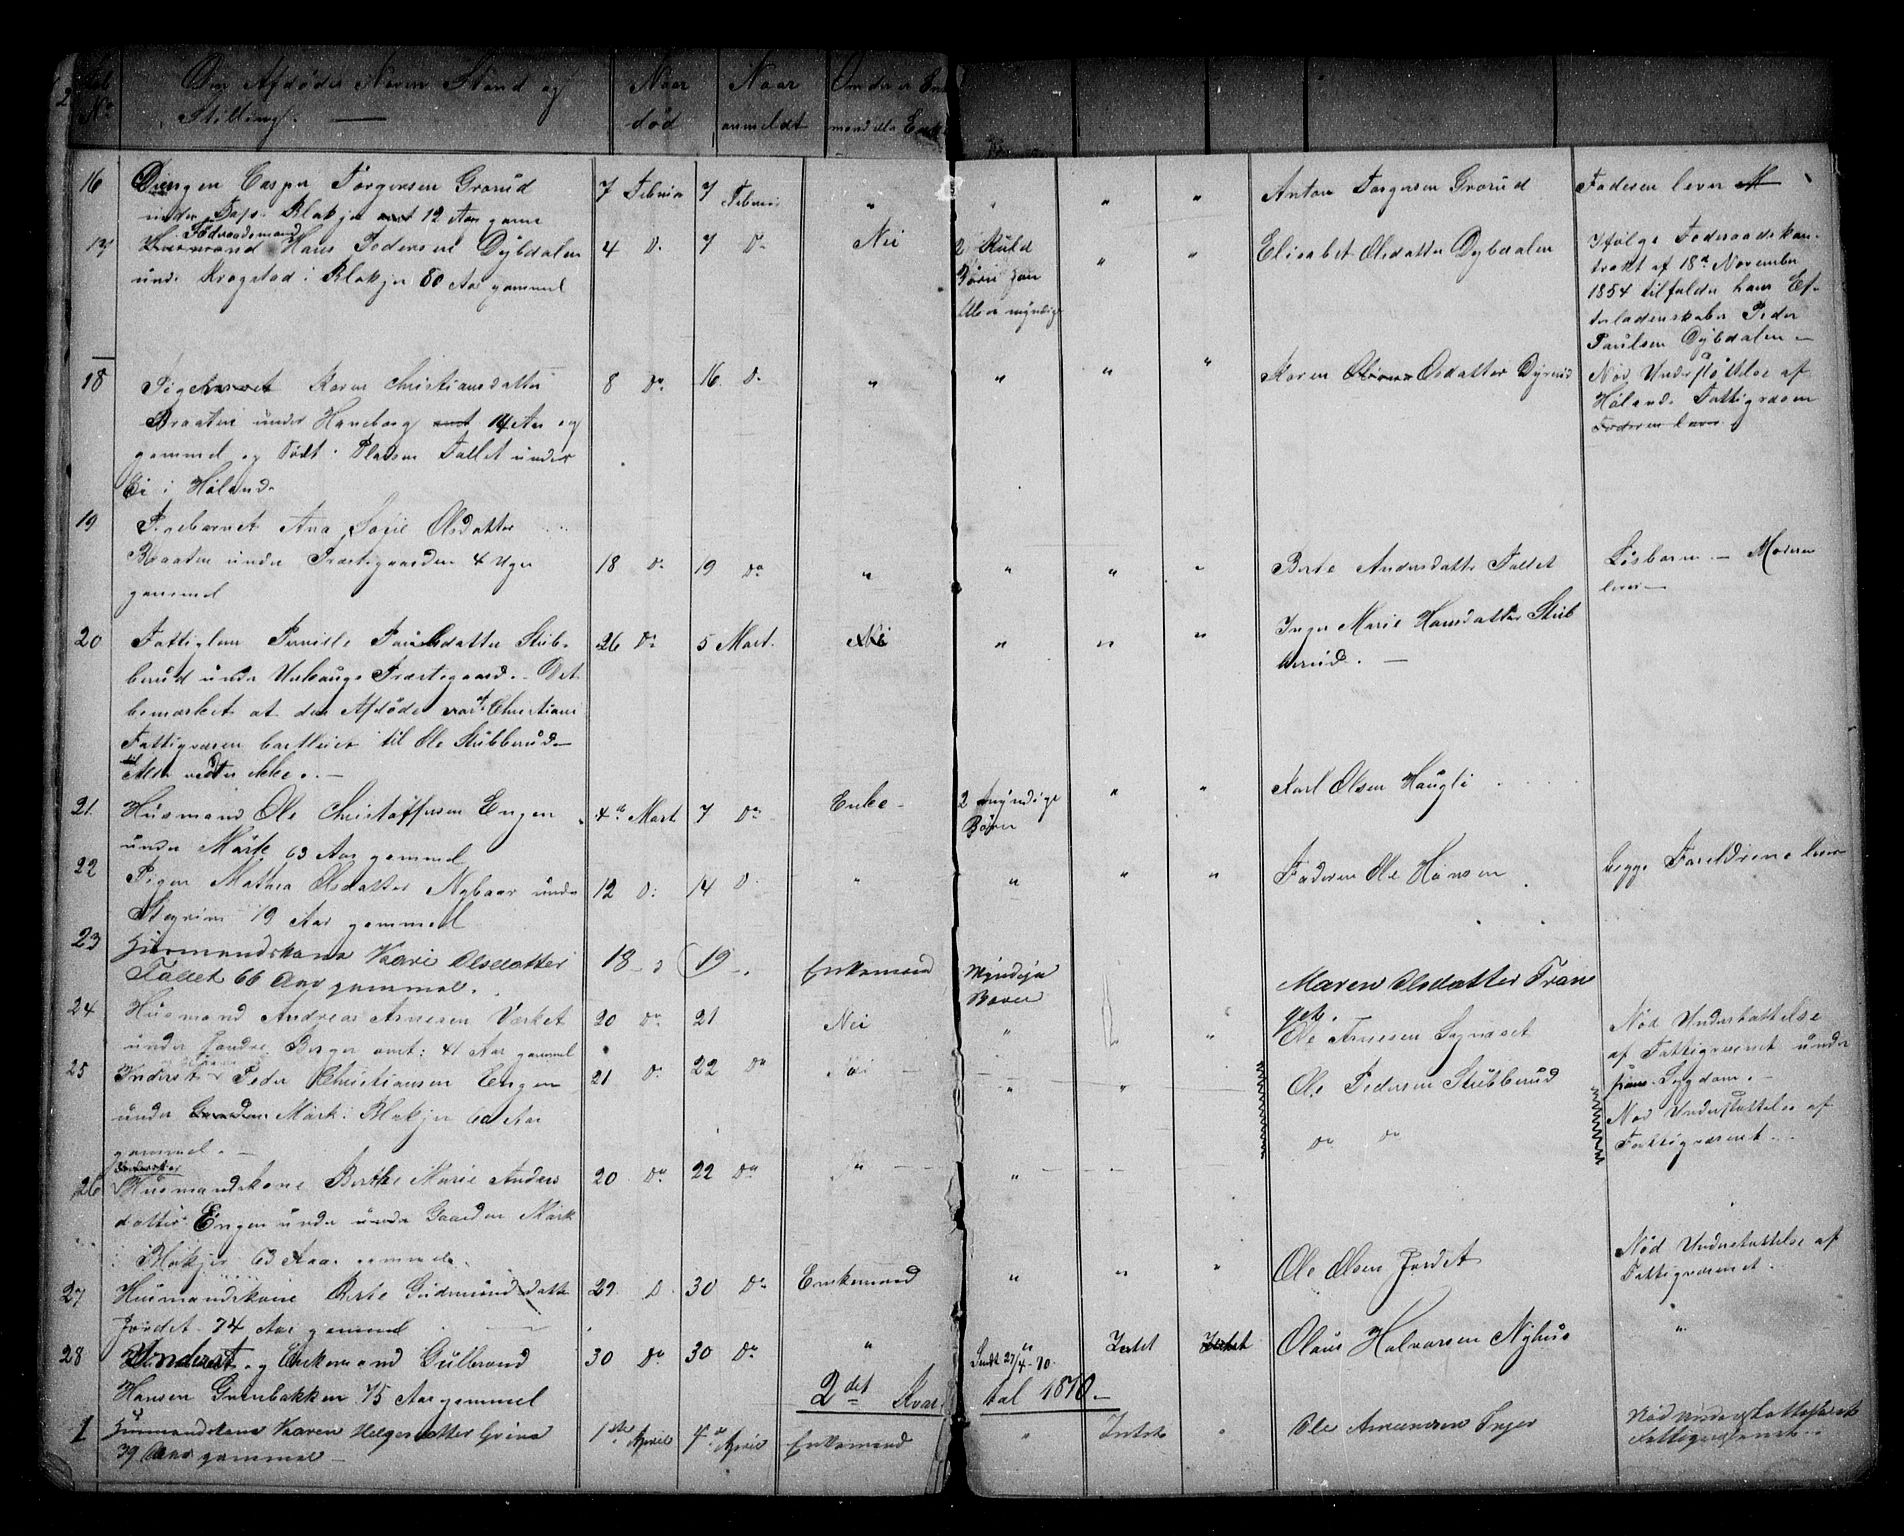 Den Afdødes Navn Stand og
Stilling. —
Naar
død
Naar
anmeldt
Om der er Enke
mand eller Enke
16 Drengen Casper Torgersen Grorud
under Blakjer 12 Aar game
7 Februa 7 Februa " " " " Anton Torgersen Grorud Faderen lever
17 Føderaadsmand Hans Pedersen Dybdalen
under Krogstad i Blakjer 80 Aar gammel
4 Do 7 Do Nei 2 Kuld
Børn
Alle er myndige
" " Elisabet Olsdatter Dybdalen
Ifølge Føderaadskon-
trakt af 18de November
1854 tilfalder hans Ef-
terladenskaber Peder
Paulsen Dybdalen –
18 Pige Karen Christiansdatter
Braaten under Haneborg 14 Aar og
gammel og Født i Pladsen Fallet under
Ei i Høland.
8 Do 16 Do " " " " Karen Olsdatter Dyrerud
Nød Understøttelse af
Hølands Fattigvæsen
Faderen lever
19 Pigebarnet Ana Sofie Olsdatter
Braaten under Præstegaarden 4 Uger
gammel
18 Do 19 Do " " " " Berte Andersdatter Fallet
Løsbarn – Moderen
lever –
20 Fattiglem Pernille Paulsdatter Stub-
berud under Urskougs Præstegaard. – Det
bemærkes at den Afdøde var af Christians
Fattigvæsen bortleiet til Ole Stubberud –
Alder vides ikke. –
26 Do 5 Mart. Nei " " " Inger Marie Hansdatter Stub
berud. –
21 Husmand Ole Christoffersen Engen
under Mørk 63 Aar gammel
4de Mart 7 Do Enke – 2 myndige
Børn
" " Karl Olsen Haugli
22 Pigen Mathea Olsdatter Nybaar under
Stegrim 19 Aar gammel
12 Do 14 D. " " " " Faderen Ole Hansen
begge Foreldrene lever
23 Husmandskone Kari Olsdatter
Fallet 66 Aar gammel.
18 – 19 – Enkemand Myndige
Børn
Maren Olsdatter Tran
get.
24 Husmand Andreas Arnesen Værket
under Søndre Berger omt: 41 Aar gammel
20 Do 21 Nei " " " Ole Arnesen Sagvaset
Nød Understøttelse
af Fattigvæsenet under
hans Sygdom. –
25 Inderst Peder Christiansen Engen
under Mørk i Blakjer 60 Aar
gammel. –
21 Do 22 Do Nei " " Ole Pedersen Stubberud
Nød Understøttelse af
Fattigvæsenet. . .
26 Inderst
Husmandskone Berthe Marie Anders
datter Engen under under Gaarden Mørk
i Blakjer 63 Aar gammel.
20 Do 22 Do " " Do Do
27 Husmandskone Berte Gudmundsdatter
Jordet 74 Aar gammel
29 D. 30 Do Enkemand " " " Ole Olsen Jordet
Nød Understøttelse af
Fattigvæsenet.
28 Inderst og Enkemand Gulbrand
Hansen Grenbakken 75 Aar gammel
30 Do 30 Do " " Intet Intet Olaus Halvorsen Nyhus "
Sendt 27/4-70.
2det Kvartal 1870. –
1 Husmandskone Karen Helgesdatter Grina
39 Aar gammel –
1ste April 4de April Enkemand " Intet " Ole Amundsen Inger
Nød Understøttelse af
Fattigvæsenet. –